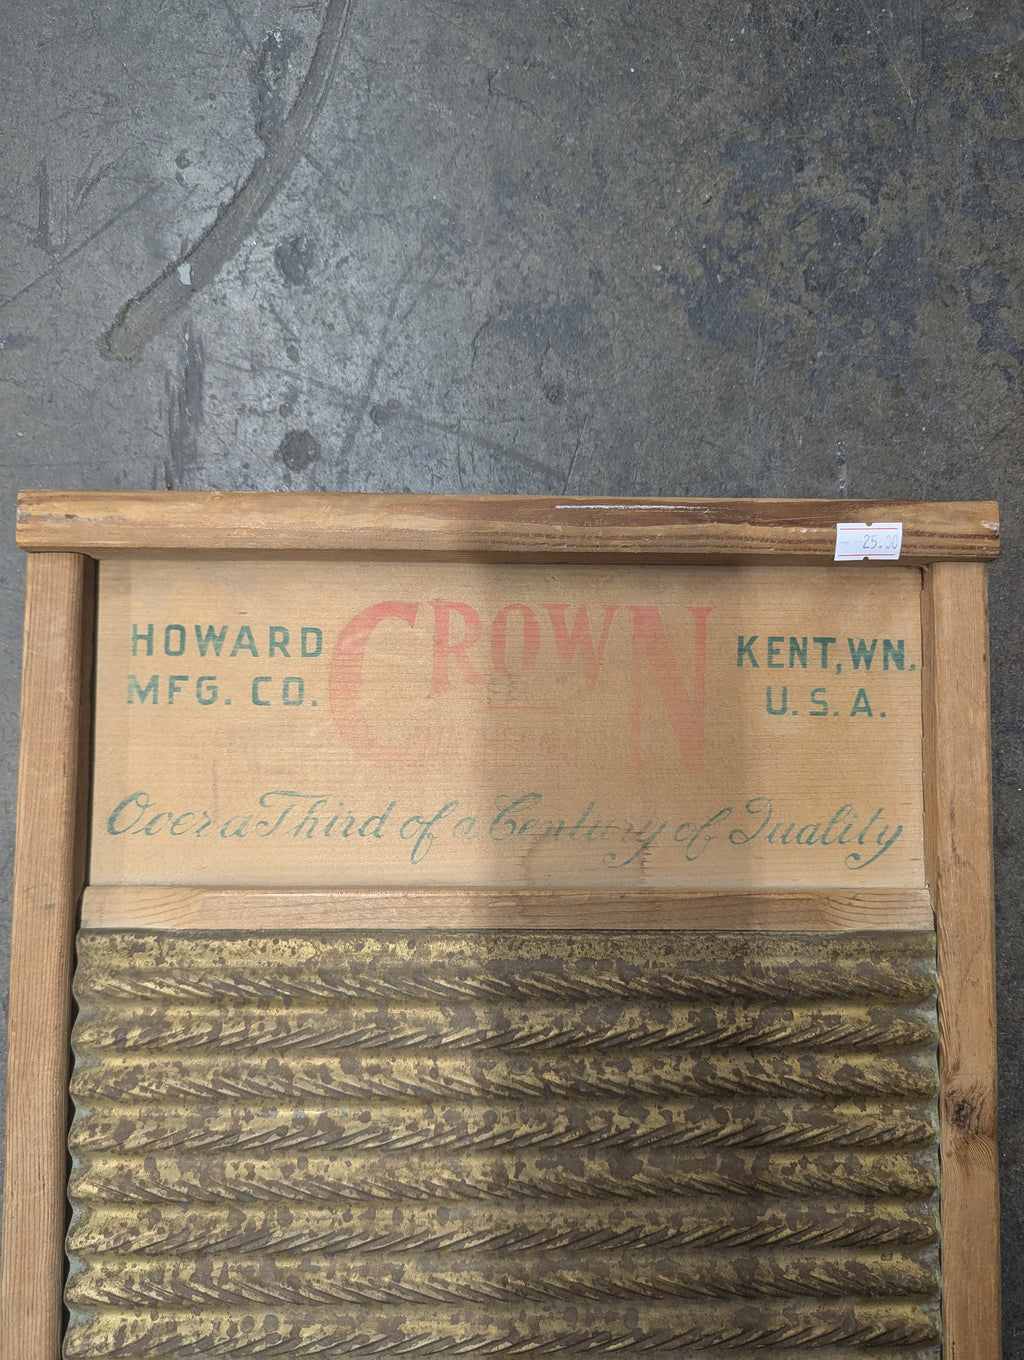 25.00
HOWARD
MFG. CO.
CROWN
KENT, WN.
U.S.A.
Over a Third of a Century of Quality